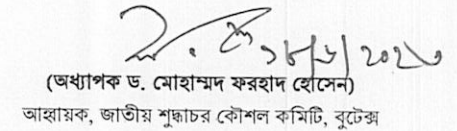 (অধ্যাপক ড. মোহাম্মদ ফরহাদ হোসেন)
আহ্বায়ক, জাতীয় শুদ্ধাচার কৌশল কমিটি, বুটেক্স